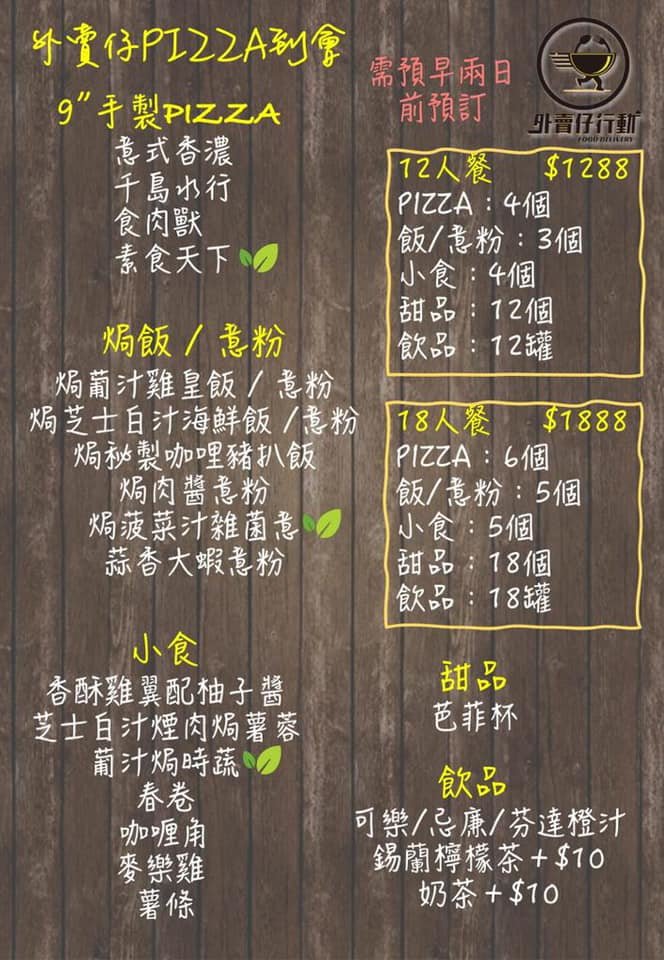 外賣仔PIZZA到會
9”手製PIZZA
意式香濃
千島水行
食肉獸
素食天下
焗飯 / 意粉
焗葡汁雞皇飯 / 意粉
焗芝士白汁海鮮飯 /意粉
焗秘製咖哩豬扒飯
焗肉醬意粉
焗菠菜汁雜菌意
蒜香大蝦意粉
小食
香酥雞翼配柚子醬
芝士白汁煙肉焗薯蓉
葡汁焗時蔬
春卷
咖喱角
麥樂雞
薯條
需預早兩日
前預訂
外賣仔行動
FOOD DELIVERY
12人餐 $1288
PIZZA：4個
飯/意粉：3個
小食：4個
甜品：12個
飲品：12罐
18人餐 $1888
PIZZA：6個
飯/意粉：5個
小食：5個
甜品：18個
飲品：18罐
甜品
芭菲杯
飲品
可樂/忌廉/芬達橙汁
錫蘭檸檬茶＋$10
奶茶＋$10